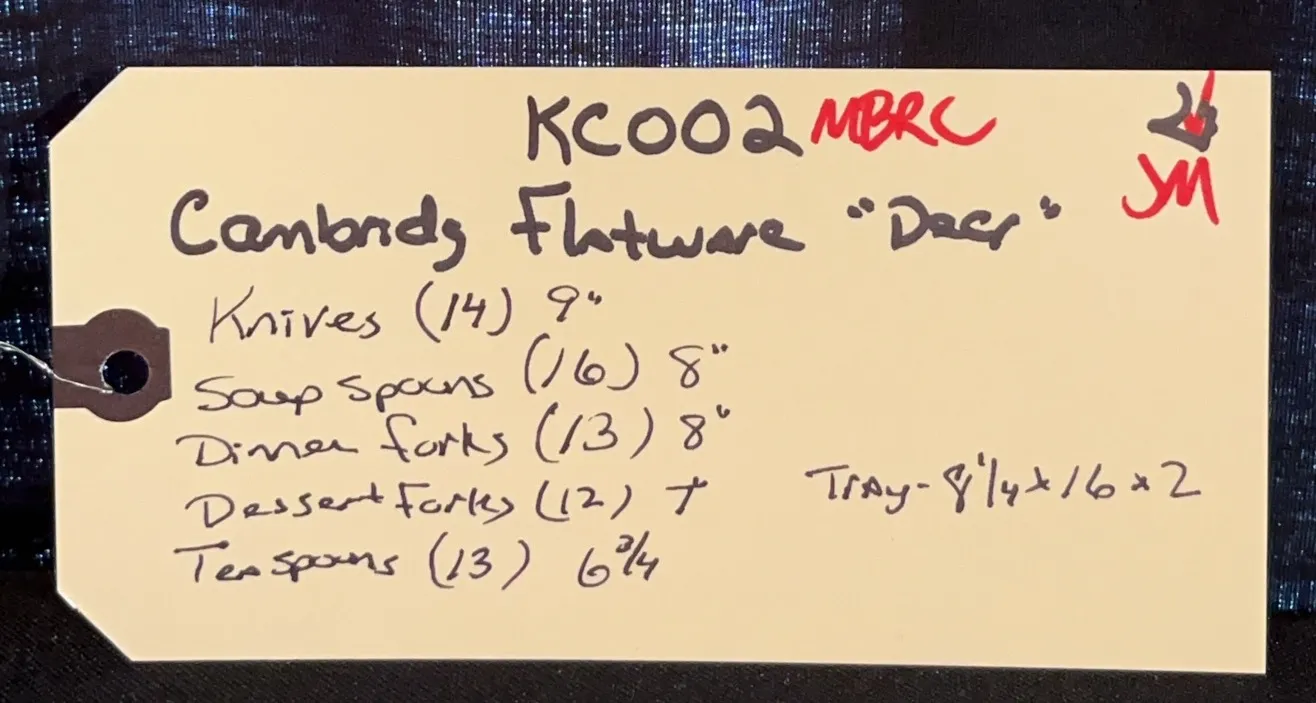 KC002 MBRC
JM
Cambridg Flatware "Deer"
Knives (14) 9"
Soup Spoons (16) 8"
Dinner forks (13) 8"
Dessert Forks (12) 7"
Tray - 8 1/4 x 16 x 2
Teaspoons (13) 6 3/4